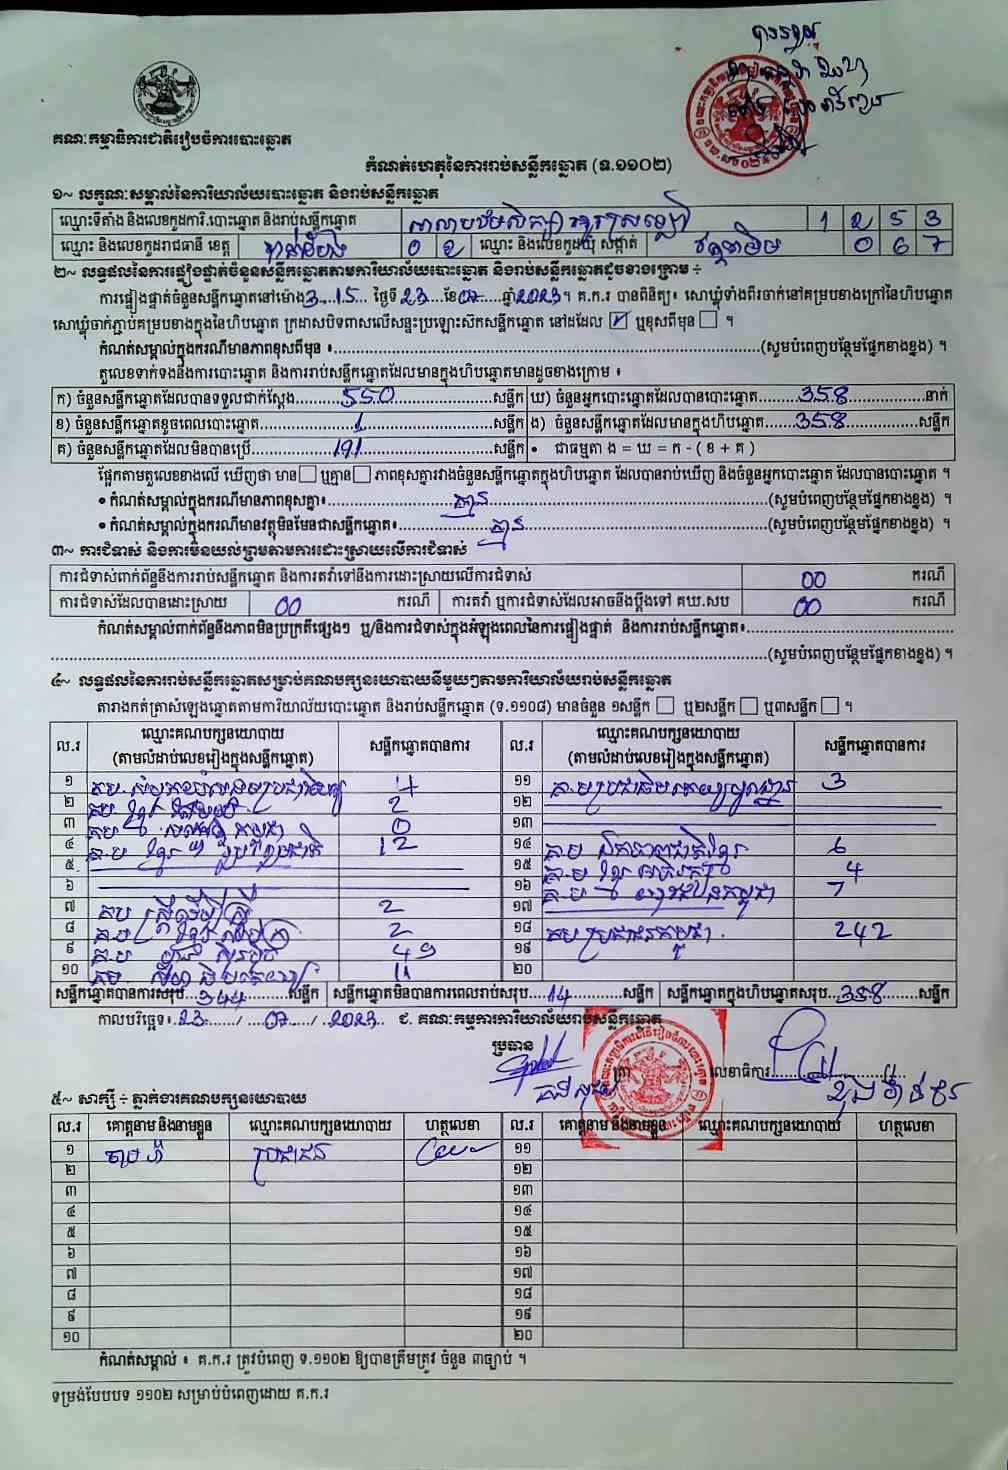 គណៈកម្មាធិការជាតិរៀបចំការបោះឆ្នោត
កំណត់ហេតុនៃការរាប់សន្លឹកឆ្នោត (ទ.១១០២)
១~ លក្ខណៈសម្គាល់នៃការិយាល័យបោះឆ្នោត និងរាប់សន្លឹកឆ្នោត
ឈ្មោះទីតាំង និងលេខកូដការិ.បោះឆ្នោត និងរាប់សន្លឹកឆ្នោត 1 2 5 3
ឈ្មោះ និងលេខកូដរាជធានី ខេត្ត បាត់ដំបង 0 2 ឈ្មោះ និងលេខកូដឃុំ សង្កាត់ 0 6 7
២~ លទ្ធផលនៃការផ្ទៀងផ្ទាត់ចំនួនសន្លឹកឆ្នោតតាមការិយាល័យបោះឆ្នោត និងរាប់សន្លឹកឆ្នោតដូចខាងក្រោម ÷
ការផ្ទៀងផ្ទាត់ចំនួនសន្លឹកឆ្នោតនៅម៉ោង 3 15 ថ្ងៃទី 23 ខែ 07 ឆ្នាំ 2023 ។ គ.ក.រ បានពិនិត្យ៖ សោឃ្នុំទាំងពីរចាក់នៅគម្របខាងក្រៅនៃហិបឆ្នោត
សោឃ្នុំចាក់ភ្ជាប់គម្របខាងក្នុងនៃហិបឆ្នោត ក្រដាសបិទពាសលើសន្ទះប្រឡោះស៊កសន្លឹកឆ្នោត នៅដដែល ☑ ឬខុសពីមុន ☐ ។
កំណត់សម្គាល់ក្នុងករណីមានភាពខុសពីមុន ៖ (សូមបំពេញបន្ថែមផ្នែកខាងខ្នង) ។
តួលេខទាក់ទងនឹងការបោះឆ្នោត និងការរាប់សន្លឹកឆ្នោតដែលមានក្នុងហិបឆ្នោតមានដូចខាងក្រោម ៖
ក) ចំនួនសន្លឹកឆ្នោតដែលបានទទួលជាក់ស្តែង 550 សន្លឹក ឃ) ចំនួនអ្នកបោះឆ្នោតដែលបានបោះឆ្នោត 358 នាក់
ខ) ចំនួនសន្លឹកឆ្នោតខូចពេលបោះឆ្នោត 1 សន្លឹក ង) ចំនួនសន្លឹកឆ្នោតដែលមានក្នុងហិបឆ្នោត 358 សន្លឹក
គ) ចំនួនសន្លឹកឆ្នោតដែលមិនបានប្រើ 191 សន្លឹក • ជាធម្មតា ង = ឃ = ក - ( ខ + គ )
ផ្អែកតាមតួលេខខាងលើ ឃើញថា មាន ☐ ឬគ្មាន ☐ ភាពខុសគ្នារវាងចំនួនសន្លឹកឆ្នោតក្នុងហិបឆ្នោត ដែលបានរាប់ឃើញ និងចំនួនអ្នកបោះឆ្នោត ដែលបានបោះឆ្នោត ។
• កំណត់សម្គាល់ក្នុងករណីមានភាពខុសគ្នា៖ គ្មាន (សូមបំពេញបន្ថែមផ្នែកខាងខ្នង) ។
• កំណត់សម្គាល់ក្នុងករណីមានវត្ថុមិនមែនជាសន្លឹកឆ្នោត៖ គ្មាន (សូមបំពេញបន្ថែមផ្នែកខាងខ្នង) ។
៣~ ការជំទាស់ និងការមិនយល់ព្រមតាមការដោះស្រាយលើការជំទាស់
ការជំទាស់ពាក់ព័ន្ធនឹងការរាប់សន្លឹកឆ្នោត និងការតវ៉ាទៅនឹងការដោះស្រាយលើការជំទាស់ 00 ករណី
ការជំទាស់ដែលបានដោះស្រាយ 00 ករណី ការតវ៉ា ឬការជំទាស់ដែលអាចនឹងប្តឹងទៅ គឃ.សប 00 ករណី
កំណត់សម្គាល់ពាក់ព័ន្ធនឹងភាពមិនប្រក្រតីផ្សេងៗ ឬ/និងការជំទាស់ក្នុងអំឡុងពេលនៃការផ្ទៀងផ្ទាត់ និងការរាប់សន្លឹកឆ្នោត៖
(សូមបំពេញបន្ថែមផ្នែកខាងខ្នង) ។
៤~ លទ្ធផលនៃការរាប់សន្លឹកឆ្នោតសម្រាប់គណបក្សនយោបាយនីមួយៗតាមការិយាល័យរាប់សន្លឹកឆ្នោត
តារាងកត់ត្រាសំឡេងឆ្នោតតាមការិយាល័យបោះឆ្នោត និងរាប់សន្លឹកឆ្នោត (ទ.១១០៨) មានចំនួន ១សន្លឹក ☐ ឬ២សន្លឹក ☐ ឬ៣សន្លឹក ☐ ។
ល.រ ឈ្មោះគណបក្សនយោបាយ (តាមលំដាប់លេខរៀងក្នុងសន្លឹកឆ្នោត) សន្លឹកឆ្នោតបានការ ល.រ ឈ្មោះគណបក្សនយោបាយ (តាមលំដាប់លេខរៀងក្នុងសន្លឹកឆ្នោត) សន្លឹកឆ្នោតបានការ
១ 4 ១១ 3
២ 2 ១២
៣ 0 ១៣
៤ 12 ១៤ 6
៥ ១៥ 4
៦ ១៦ 7
៧ 2 ១៧
៨ 2 ១៨ គ.ប ប្រជាជនកម្ពុជា 242
៩ 49 ១៩
១០ 11 ២០
សន្លឹកឆ្នោតបានការសរុប 344 សន្លឹក សន្លឹកឆ្នោតមិនបានការពេលរាប់សរុប 14 សន្លឹក សន្លឹកឆ្នោតក្នុងហិបឆ្នោតសរុប 358 សន្លឹក
កាលបរិច្ឆេទ៖ 23 / 07 / 2023 ជ. គណៈកម្មការការិយាល័យរាប់សន្លឹកឆ្នោត
ប្រធាន
ត្រា លេខាធិការ
៥~ សាក្សី ÷ ភ្នាក់ងារគណបក្សនយោបាយ
ល.រ គោត្តនាម និងនាមខ្លួន ឈ្មោះគណបក្សនយោបាយ ហត្ថលេខា ល.រ គោត្តនាម និងនាមខ្លួន ឈ្មោះគណបក្សនយោបាយ ហត្ថលេខា
១ ប្រជាជន ១១
២ ១២
៣ ១៣
៤ ១៤
៥ ១៥
៦ ១៦
៧ ១៧
៨ ១៨
៩ ១៩
១០ ២០
កំណត់សម្គាល់ ៖ គ.ក.រ ត្រូវបំពេញ ទ.១១០២ ឱ្យបានត្រឹមត្រូវ ចំនួន ៣ច្បាប់ ។
ទម្រង់បែបបទ ១១០២ សម្រាប់បំពេញដោយ គ.ក.រ